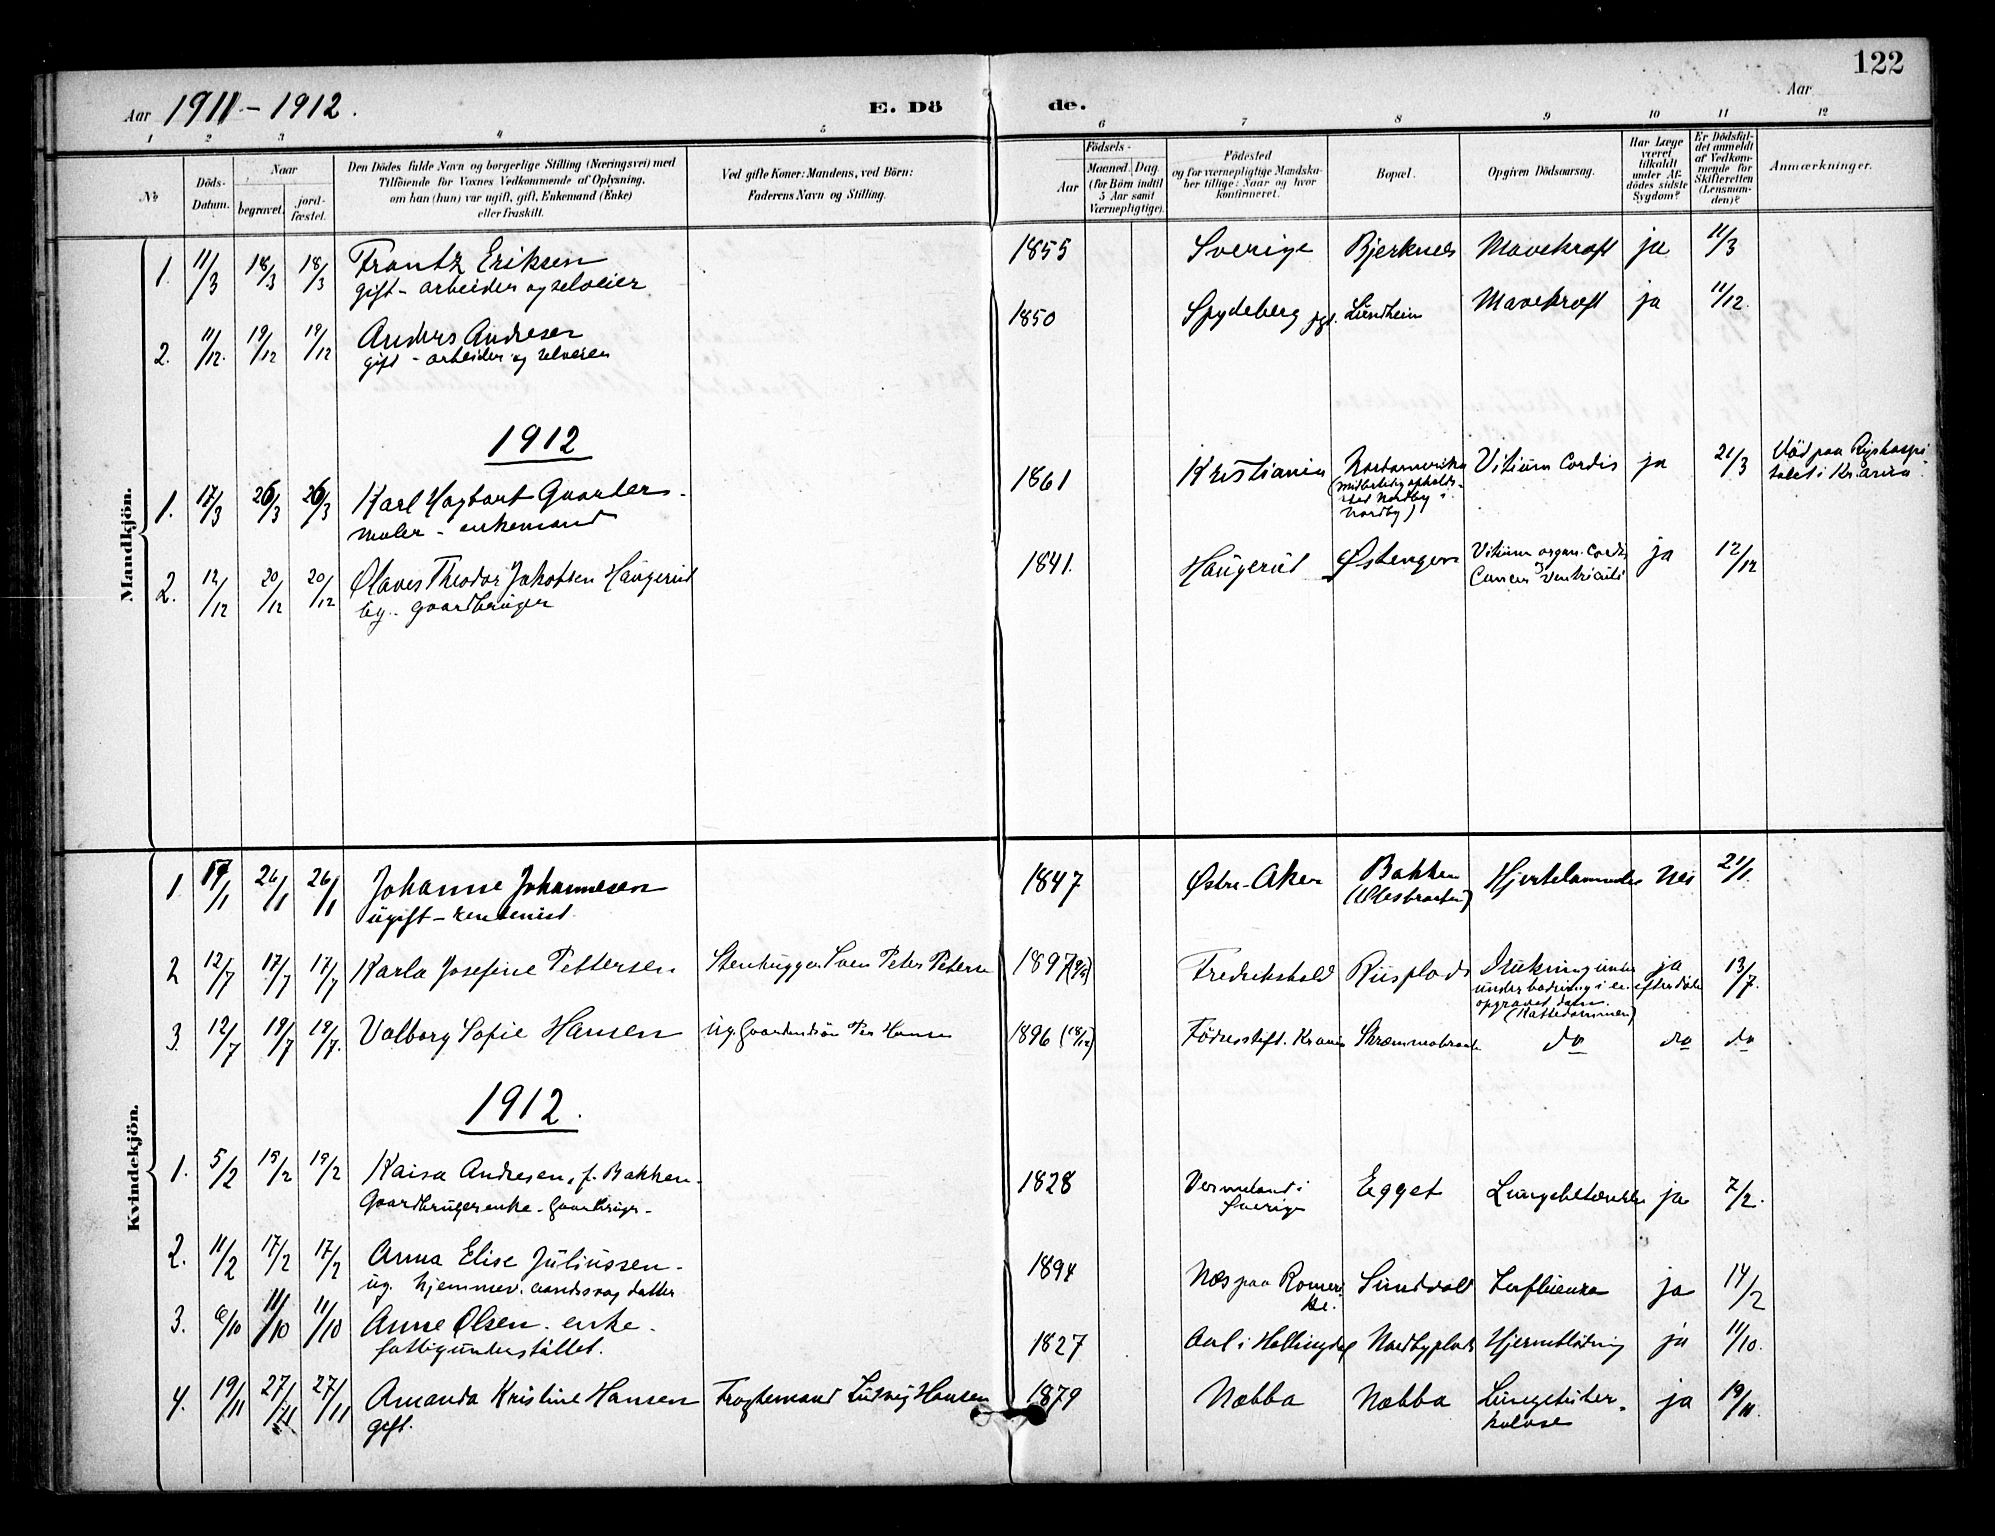 122
Aar 1911 - 1912.
E. Dö de.
Aar
1 2 3 4 5 6 7 8 9 10 11 12
No
Döds-Datum.
Naar
begravet.
jord-fæstet.
Den Dödes fulde Navn og borgerlige Stilling (Næringsvei) med
Tilföiende for Voxnes Vedkommende af Oplysning,
om han (hun) var ugift, gift, Enkemand (Enke)
eller fraskilt.
Ved gifte Koner: Mandens, ved Börn:
Faderens Navn og Stilling.
Födsels-
Aar
Maaned. Dag.
(for Börn indtil
5 Aar samt
Værnepligtige).
Födested
og for værnepligtige Mandska-
ber tillige: Naar og hvor
konfirmeret.
Bopæl.
Opgiven Dödsaarsag.
Har Læge
været
tilkaldt
under Af-
dödes sidste
Sygdom?
Er Dödsfal-
det anmeldt
af Vedkom-
mende for
Skifteretten
(Lensman-
den)?
Anmærkninger.
Mandkjön.
1. 11/3 18/3 18/3 Frantz Eriksen 1855 Sverige Bjerknes Mavekræft ja 11/3
gift - arbeider og selveier
2. 11/12. 19/12 19/12 Anders Andresen 1850 Spydeberg pgl. Lundheim Mavekræft ja 11/12.
gift - arbeider og selveier
1912
1. 17/3 26/3 26/3 Karl Hagbart 1861 Kristiania Nordamerika Vitium Cordis ja 21/3 Död paa Rigshospi
maler - enkemand (midlertidig opholds-
sted Nordby i
Nordby)
talet i Kr.ania
2. 12/12 20/12 20/12 Olaves Theodor Jakobsen Haugerud 1841. Haugerud Østengen Vitium organ. Cordis ja 12/12
gaardbruger Cancer ventriculi
Kvindekjön.
1. 26/1 26/1 Johanne Johannesen 1847 Østre-Aker Bakken Hjertelammelse Nei 21/1.
ugift - rentenist.
2 12/7 17/7 17/7 Karla Josefine Pettersen Stenhugger Sven Peter Peterse 1897 Fredrikshald Riisplads Drukning ja 13/7.
under badning i en efter döde
opgravet dam.
(Kattedammen)
3. 12/7 19/7 19/7. Valborg Sofie Hansen Ug. Per Hansen 1896 (18/12) Födselsstift. Krania do do do
1912.
1. 5/2 19/2 19/2 Kaisa Andresen, f. Bakken- 1828 Vermeland i Egget Lungebetændelse ja 7/2.
Gaardbrugerenke - Sverige
2. 11/2 17/2 17/2 Anna Elise Juliussen - 1894 Næs paa Romeri- Sundvold Influenza ja 14/2
ug. hjemmev. aandssvag datter ke.
3. 6/10 11/10 11/10 Anne Olsen - enke - 1827 Aal i Hallingdal Nordbyplads Hjerneblödning ja 11/10.
fattigunderstöttet.
4. 19/11 27/11 27/11 Amanda Kristine Hansen Fragtemand Ludvig Hansen 1879 Næbba Næbba Lungetuber- ja 19/11.
gift. kulose